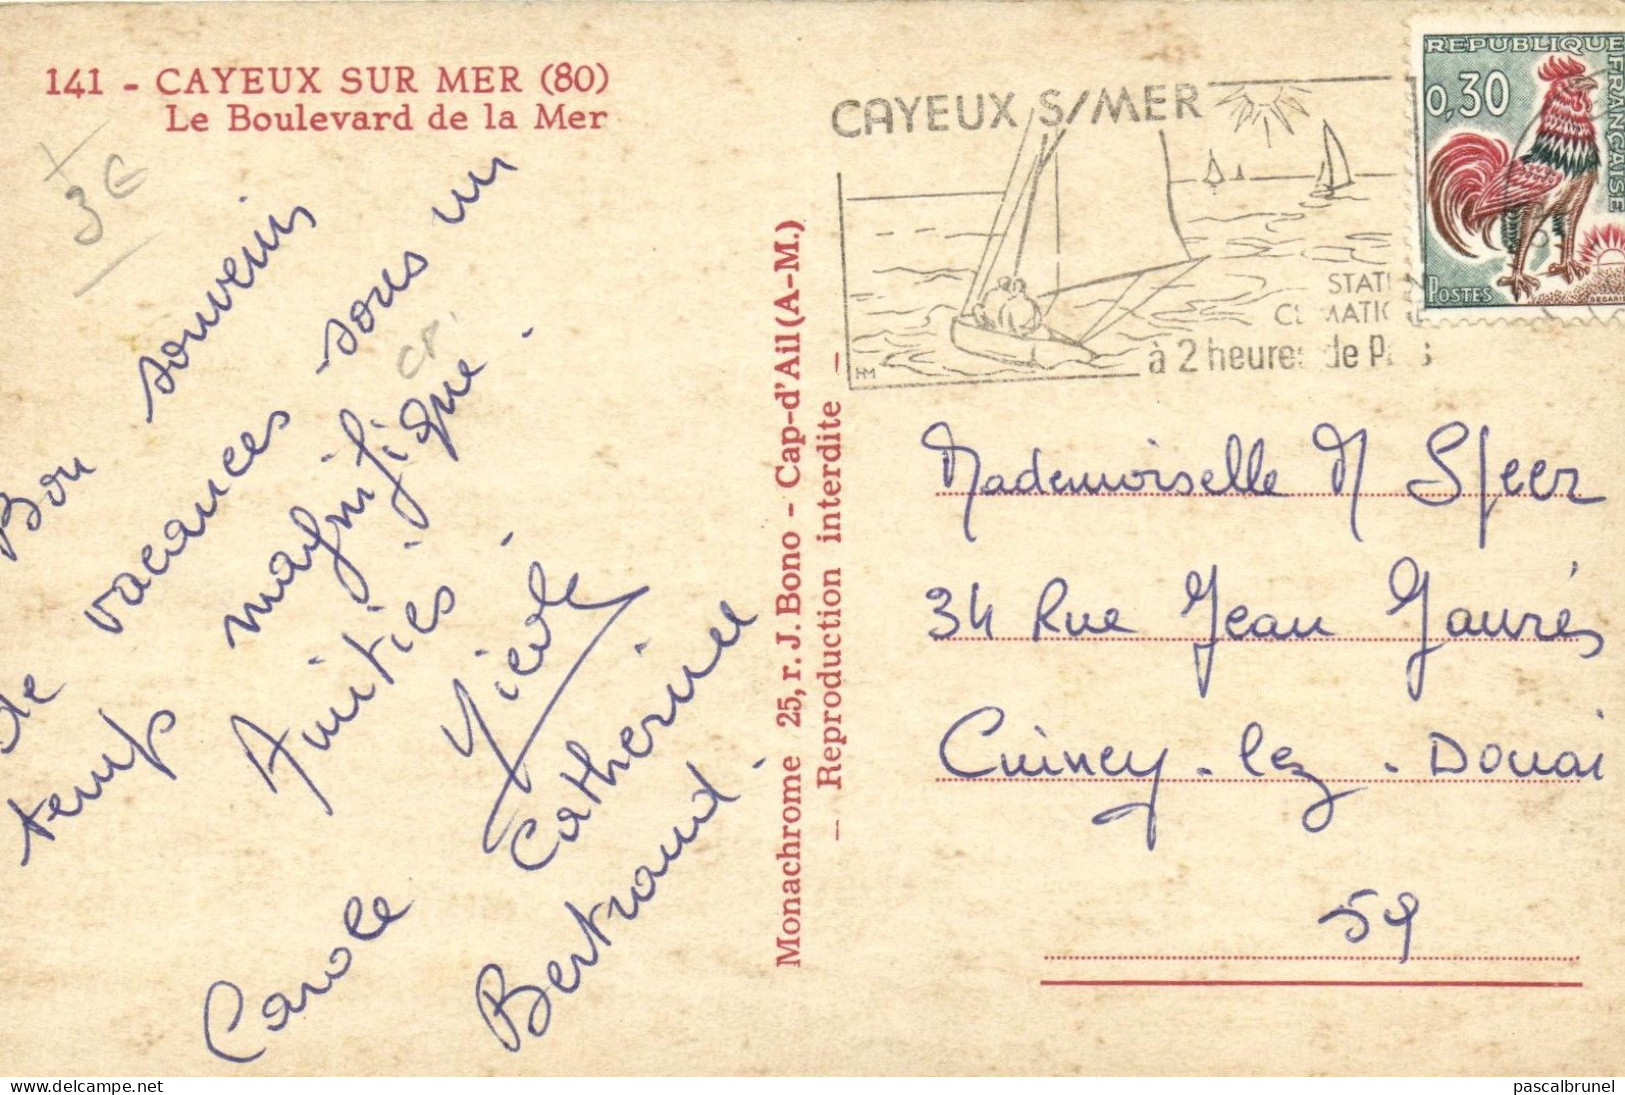 141 - CAYEUX SUR MER (80)
Le Boulevard de la Mer
3€
CP.
Bon souvenir
de vacances sous un
temps magnifique.
Amitiés.
Nicole
Carole Catherine
Bertrand.
Monachrome 25, r. J. Bono - Cap-d'Ail (A-M.)
— Reproduction interdite —
CAYEUX S/MER
STATI
CLIMATIQ
à 2 heures de Paris
HM
REPUBLIQUE
FRANÇAISE
0,30
POSTES
DECARIS
Mademoiselle M Speer
34 Rue Jean Jaurés
Cuincy - lez - Douai
59
www.delcampe.net
pascalbrunel